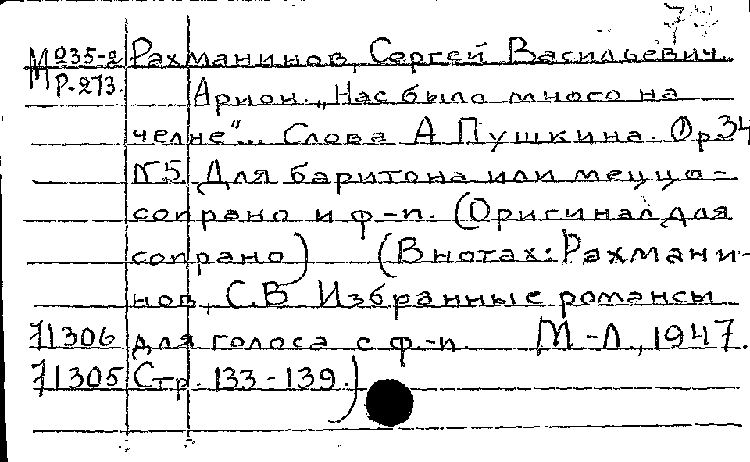 М035-2 Рахманинов, Сергей Васильевич.
Р-273. Арион. „Нас было много на
челне"... Слова А Пушкина. Op34
N5 Для баритона или меццо-
сопрано и ф-п. (Оригинал для
сопрано) (В нотах: Рахмани-
нов, С.В Избранные романсы
71306 для голоса с ф-п. М-Л., 1947.
71305 Стр. 133-139.)